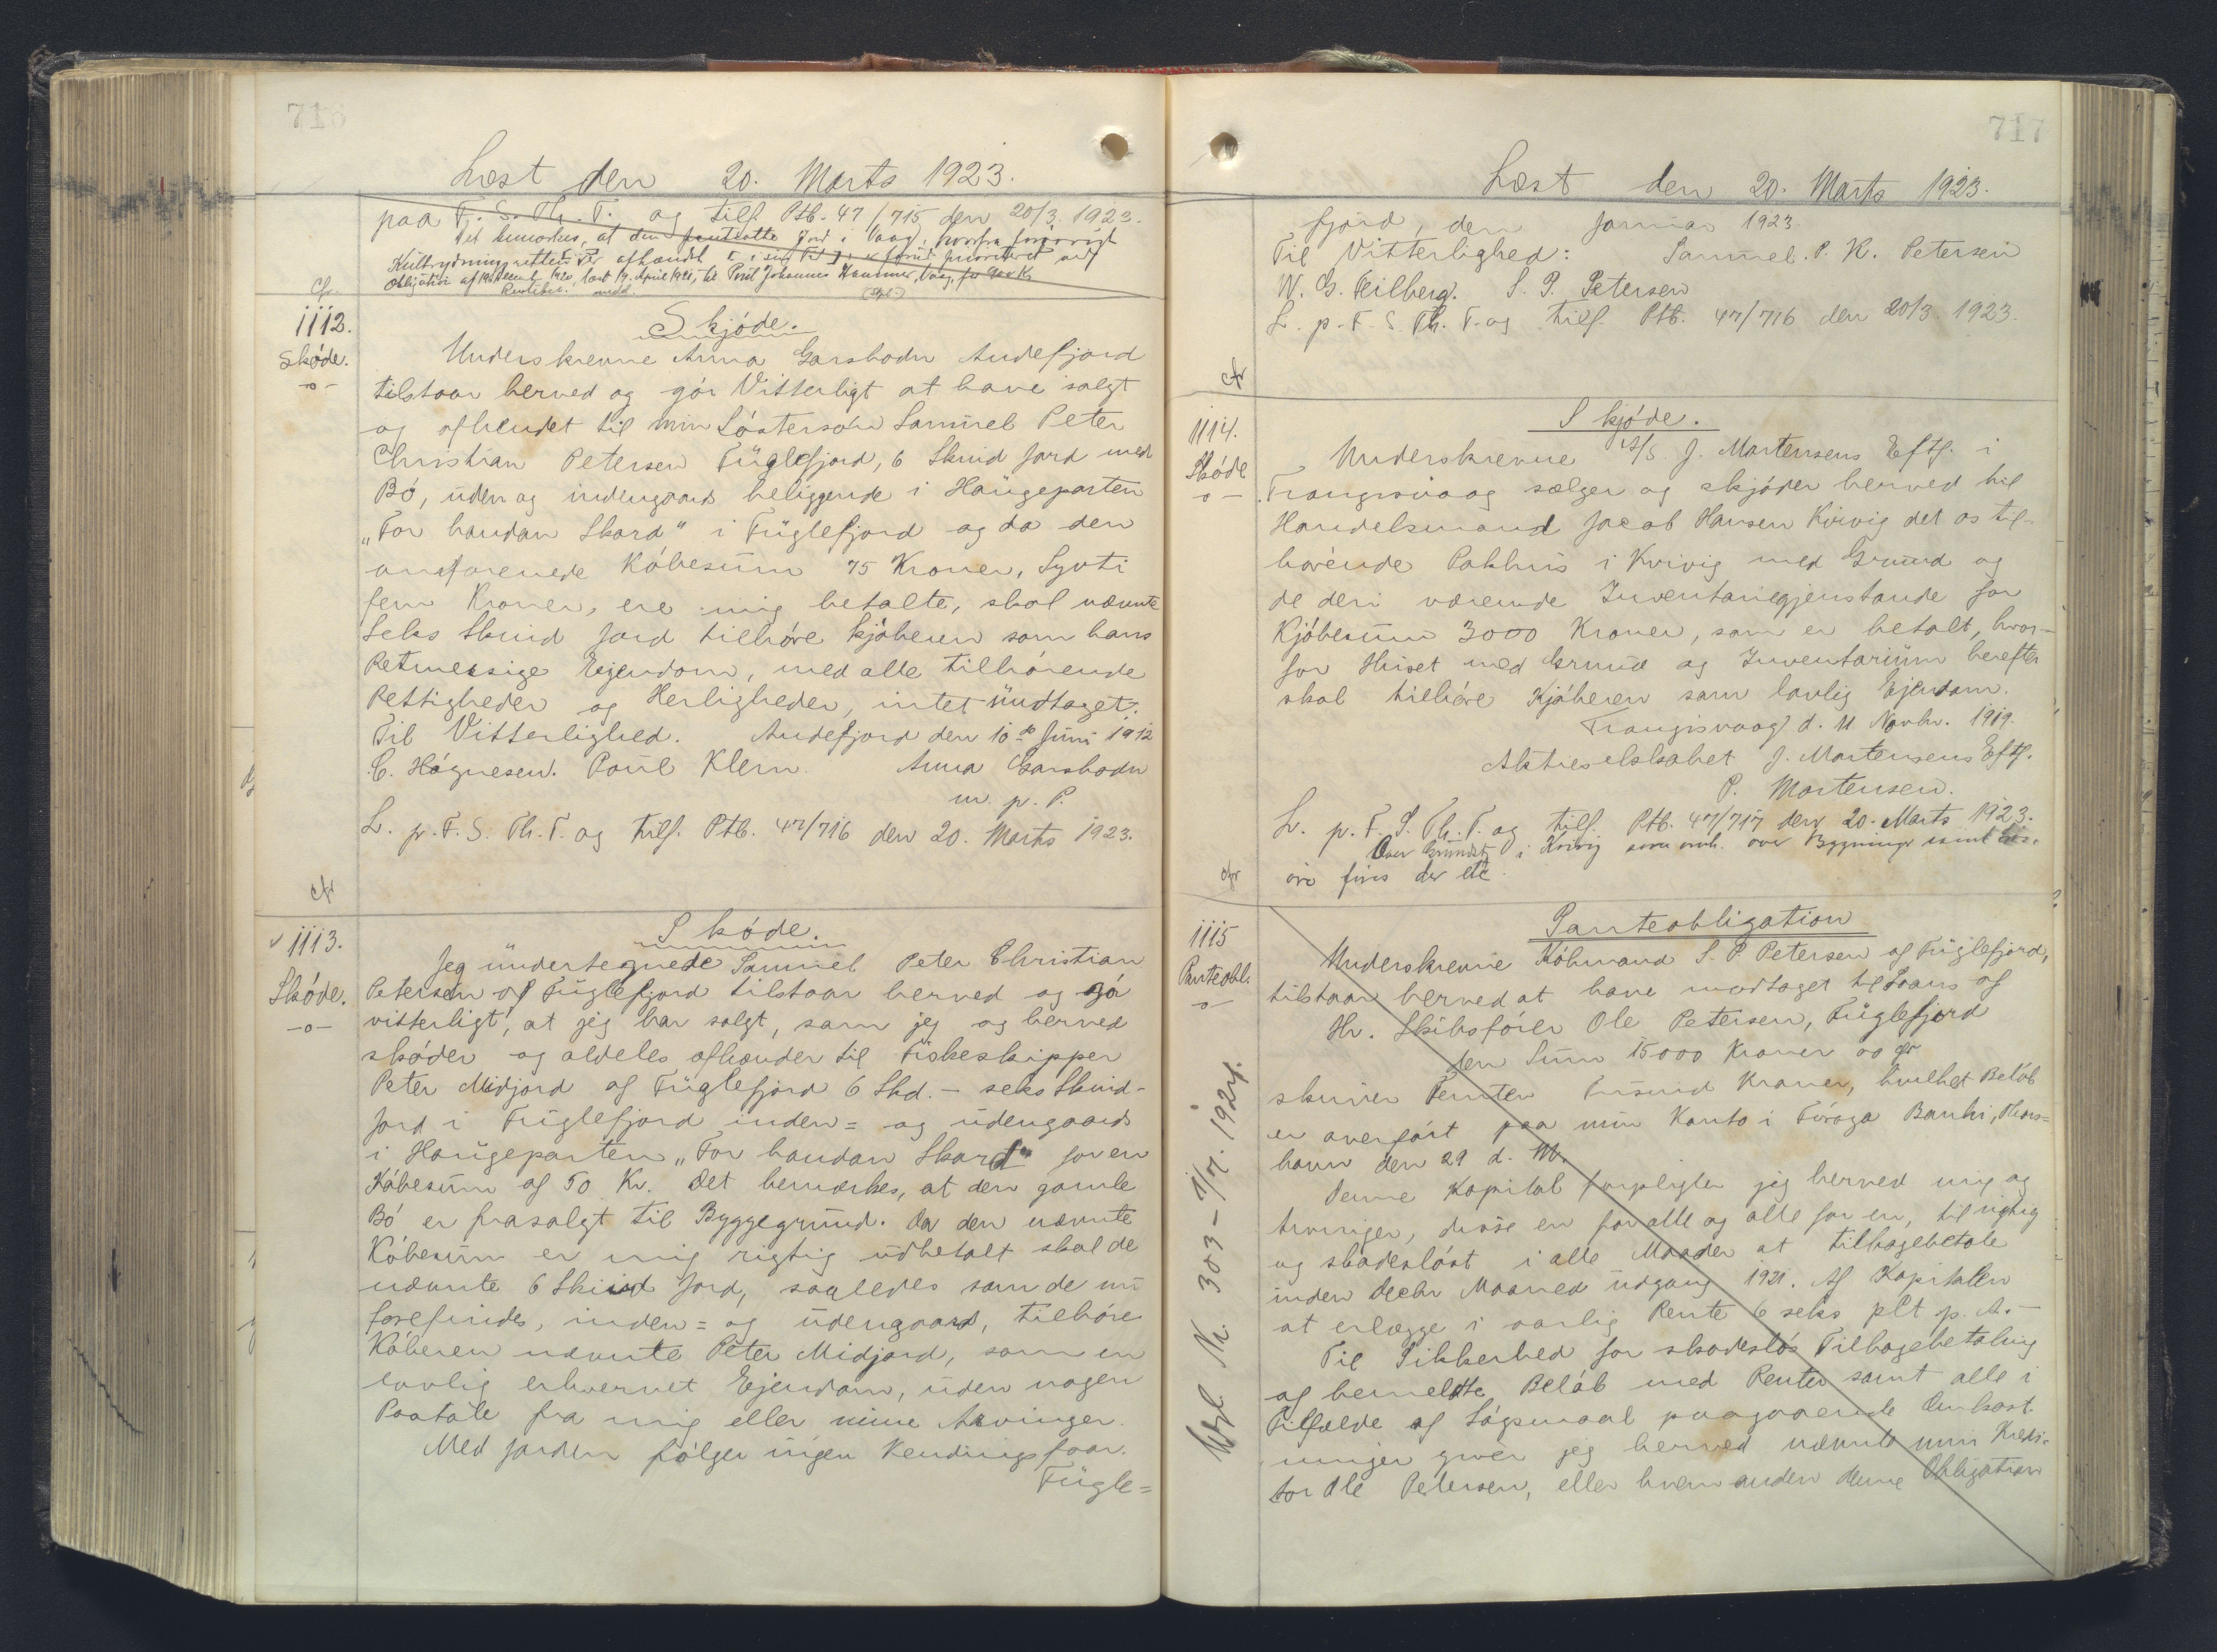 716
Læst den 20. Marts 1923.
paa F. S. Th. T. og tilf. Ptb. 47/715 den 20/3. 1923.
Det bemærkes, at den pantsatte Jord i Vaag, hvorfra forövrigt
Kultrydningsretten er afhændet
Obligation af 1920, læst 19. April 1921, til Poul Johannes Vaag, for 900 Kr.
cfr.
1112.
Skøde.
-o-
Skjóde.
Underskrevne Anna Garsbodn Andefjord
tilstaar herved og gór Vitterligt at have solgt
og afhendet til min Sóstersón Samuel Peter
Christian Petersen Fuglefjord, 6 Skind Jord med
Bó, uden og indengaards beliggende i Haugeparten
„For handan Skard" i Fuglefjord og da den
Kóbesum 75 Kroner, Sytti
fem Kroner, ere mig betalte, skal nævnte
Seks Skind Jord tilhóre kjóberen som hans
Retmessige Eijendom, med alle tilhórende
Rettigheder og Herligheder, intet undtaget.
Til Vitterlighed. Andefjord den 10de Juni 1912
C. Hógnesen. Poul Klein. Anna Garsbodn
m. p. P.
L. p. F. S. Th. T. og tilf. Ptb. 47/716 den 20. Marts 1923.
cfr
1113.
Skóde.
-o-
Skóde.
Jeg undertegnede Samuel Peter Christian
Petersen af Fuglefjord tilstaar herved og gór
vitterligt, at jeg har solgt, som jeg og herved
skóder og aldeles afhænder til Fiskeskipper
Peter Midjord af Fuglefjord 6 Skd. - seks Skind-
Jord i Fuglefjord inden= og udengaards
i Haugeparten „For handan Skard" for en
Kóbesum af 50 Kr. Det bemærkes, at den gamle
Bó er frasolgt til Byggegrund. Da den nævnte
Kóbesum er mig rigtig udbetalt skal de
nævnte 6 Skind Jord, saaledes som de nu
forefindes, inden= og udengaards, tilhóre
Kóberen nævnte Peter Midjord, som en
lovlig erhvervet Ejendom, uden nogen
Paatale fra mig eller mine Arvinger.
Med Jorden fólger ingen Kendingsfaar.
Fugle=
717
Læst den 20. Marts 1923.
fjord, den Januar 1923.
Til Vitterlighed: Samuel. P. K. Petersen
W. G. Heilberg. S. P. Petersen
L. p. F. S. Th. T. og tilf. Ptb. 47/716 den 20/3. 1923.
cfr
1114.
Skóde
-o-
Skjóde.
Underskrevne A/S. J. Mortensens Eftf. i
Trangisvaag sælger og skjóder herved til
Handelsmand Jacob Hansen Kvivig det os til-
hórende Pakhus i Kvivig med Grund og
de deri værende Inventariegjenstande for
Kjóbesum 3000 Kroner, som er betalt, hvor-
for Huset med Grund og Inventarium herefter
skal tilhóre Kjóberen som lovlig Ejendom.
Trangisvaag d. 11 Novbr. 1919.
Aktieselskabet J. Mortensens Eftf.
P. Mortensen.
L. p. F. S. Th. T. og tilf. Ptb. 47/717 den 20. Marts 1923.
Over Grundst. i Kvivig som omh. over Bygninger samt
finds der etc.
cfr
1115
Panteobl.
-o-
Panteobligation
Underskrevne Kóbmand S. P. Petersen af Fuglefjord,
tilstaar herved at have modtaget til Laans af
Hr. Skibsfórer Ole Petersen, Fuglefjord
den Sum 15000 Kroner 00 ør
skriver Femten Tusind Kroner, hvilket Belób
er overfórt paa min Konto i Fóroya Banki, Thors=
havn den 29 d. M.
Denne Kapital forpligter jeg herved mig og
Arvinger, disse en for alle og alle for en, til rigtig
og skadeslóst i alle Maader at tilbagebetale
inden Decbr Maaned udgang 1921. Af Kapitalen
at erlægge i aarlig Rente 6 seks plt p. A.-
Til Sikkerhed for skadeslós Tilbagebetaling
af bemeldte Belób med Renter samt alle i
Tilfælde af Sógsmaal paagaaende Omkost
ninger giver jeg herved nævnte min Kredi-
tor Ole Petersen, eller hvem anden denne Obligation
Nr. 303 - 1/7. 1924.